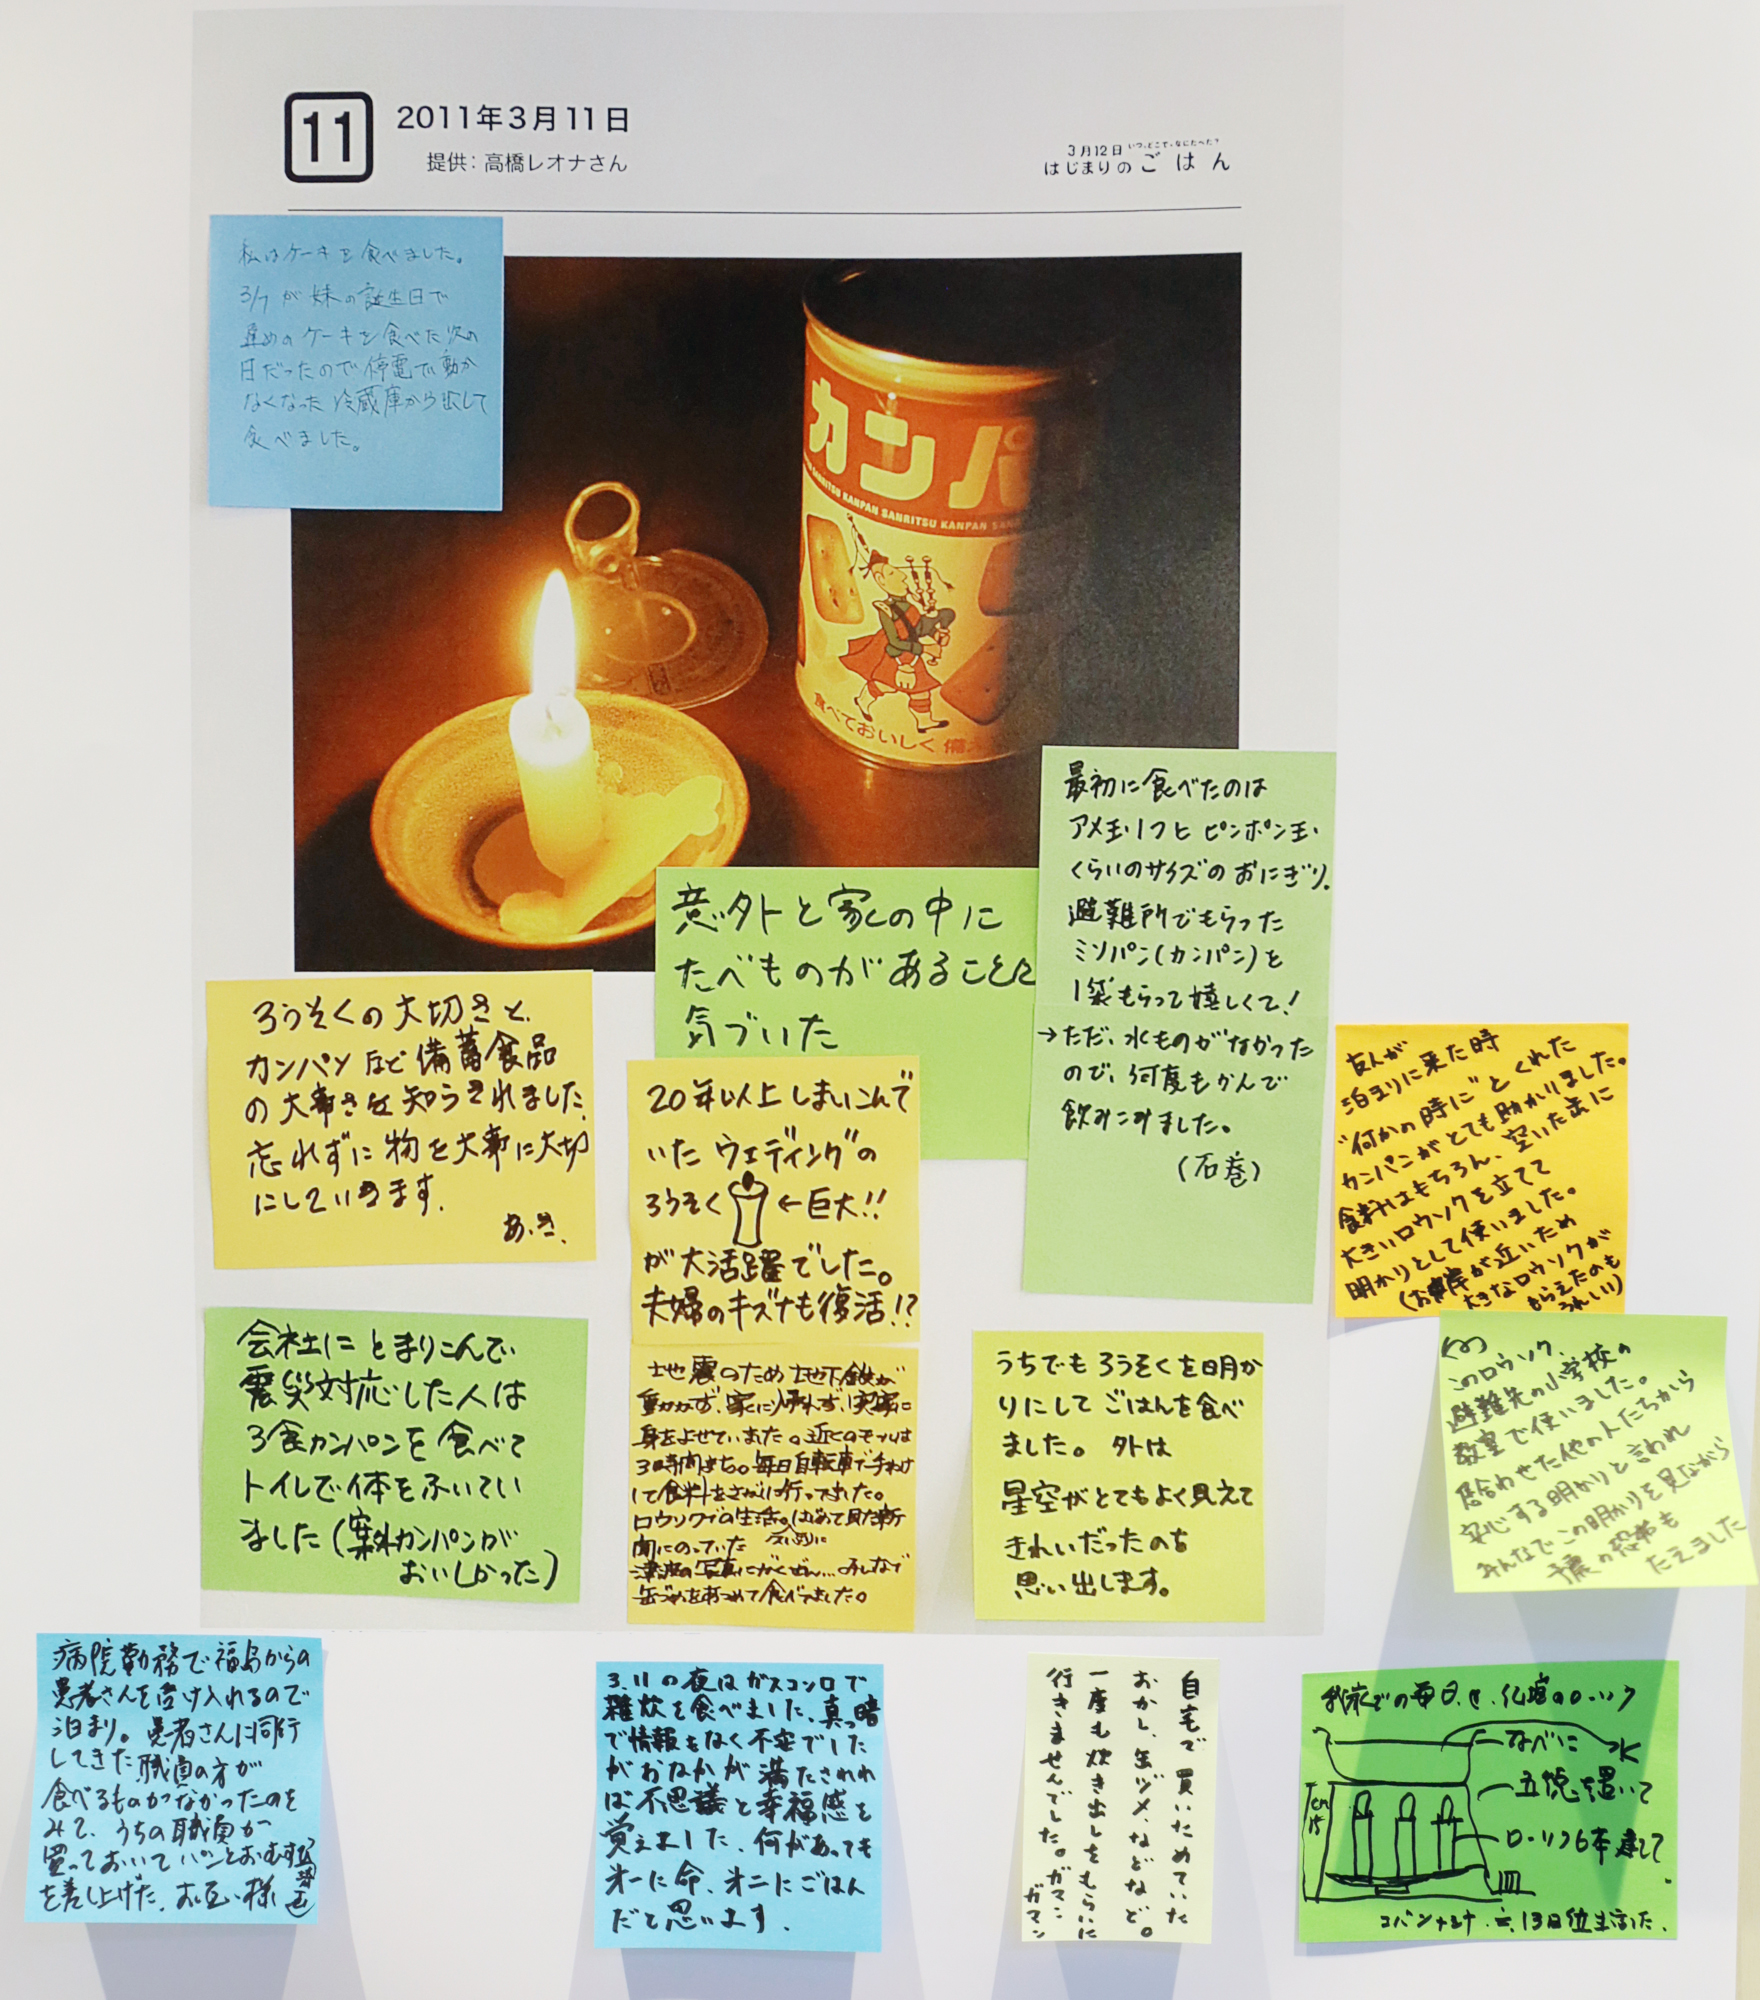 11
2011年3月11日
提供：高橋レオナさん
3月12日 いつ、どこで、なにたべた？
はじまりのごはん
私はケーキを食べました。
3/7が妹の誕生日で
早めのケーキを食べた次の
日だったので停電で動か
なくなった冷蔵庫から出して
食べました。
カンパ
SANRITSU KANPAN SANRITSU KANPAN SAN
食べておいしく 備
最初に食べたのは
アメ玉1つと ピンポン玉
くらいのサイズのおにぎり。
避難所でもらった
ミソパン(カンパン)を
1袋もらって嬉しくて!
→ただ、水ものがなかった
ので、何度もかんで
飲みこみました。
(石巻)
意外と家の中に
たべものがあることに
気づいた
ろうそくの大切さと、
カンパンなど備蓄食品
の大事さを知らされました。
忘れずに物を大事に大切
にしていきます。
あ.き.
20年以上しまいこんで
いたウェディングの
ろうそく ←巨大!!
が大活躍でした。
夫婦のキズナも復活!?
友人が
泊まりに来た時
"何かの時に"とくれた
カンパンがとても助かりました。
食料はもちろん、空いた缶に
大きいロウソクを立てて
明かりとして使いました。
(お彼岸が近いため
大きなロウソクが
もらえたのも
うれしい)
会社にとまりこんで
震災対応した人は
3食カンパンを食べて
トイレで体をふいてい
ました(案外カンパンが
おいしかった)
地震のため地下鉄が
動かず、家に帰れず、実家に
身をよせていました。近くのモールは
3時間まち。毎日自転車で手わけ
して食料をさがしに行ってました。
ロウソクでの生活。はじめて見た新
聞にのっていた
津波の写真にがくぜん…みんなで
缶づめをあつめて食べてました。
うちでもろうそくを明か
りにしてごはんを食べ
ました。外は
星空がとてもよく見えて
きれいだったのを
思い出します。
このロウソク、
避難先の小学校の
教室で使いました。
居合わせた他の人たちから
安心する明かりと言われ
みんなでこの明かりを見ながら
余震の恐怖も
たえました
病院勤務で福島からの
患者さんを受け入れるので
泊まり。患者さんに同行
してきた職員の方が
食べるものがなかったのを
みて、うちの職員が
買っておいてパンとおむすび
を差し上げた。お互い様
3.11の夜はガスコンロで
雑炊を食べました、真っ暗
で情報もなく不安でした
がおなかが満たされれ
ば不思議と幸福感を
覚えました、何があっても
オ一に命、オ二にごはん
だと思います.
自宅で買いためていた
おかし、缶ヅメ、などなど。
一度も炊き出しをもらいに
行きませんでした。ガマン
ガマン
我家での毎日.
なべに 水
五徳を置いて
ローソク6本建てて
15cm